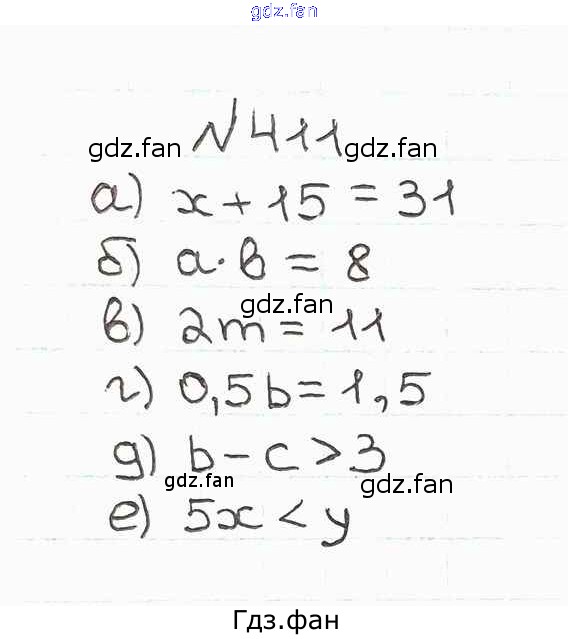 gdz.fan
№411
gdz.fan gdz.fan
а) x + 15 = 31
б) a · b = 8
gdz.fan
в) 2m = 11
г) 0,5b = 1,5
д) b - c > 3
gdz.fan gdz.fan
е) 5x < y
Гдз.фан